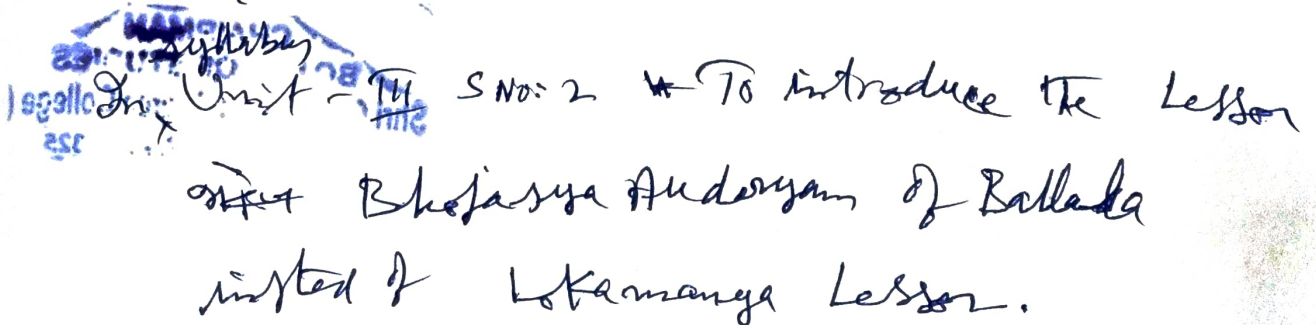 Syllabus
In Unit - III S No: 2 To introduce the Lesson
Bhojasya Audaryam of Ballala
insted of Lokamanya Lesson.